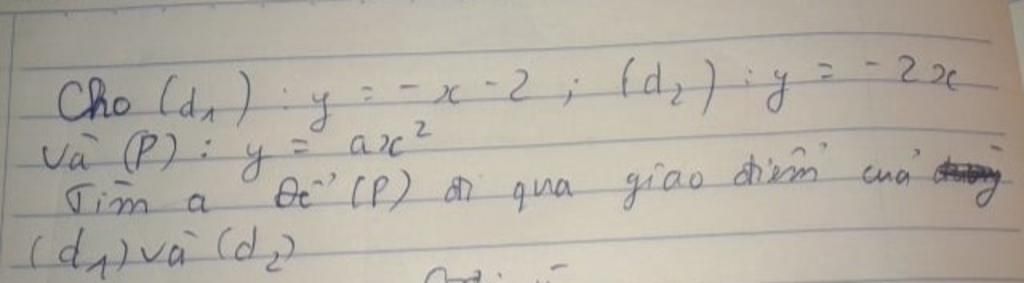 Cho (d₁) : y = -x - 2 ; (d₂) : y = -2x
Và (P) : y = ax²
Tìm a Để (P) đi qua giao điểm của
(d₁) và (d₂)